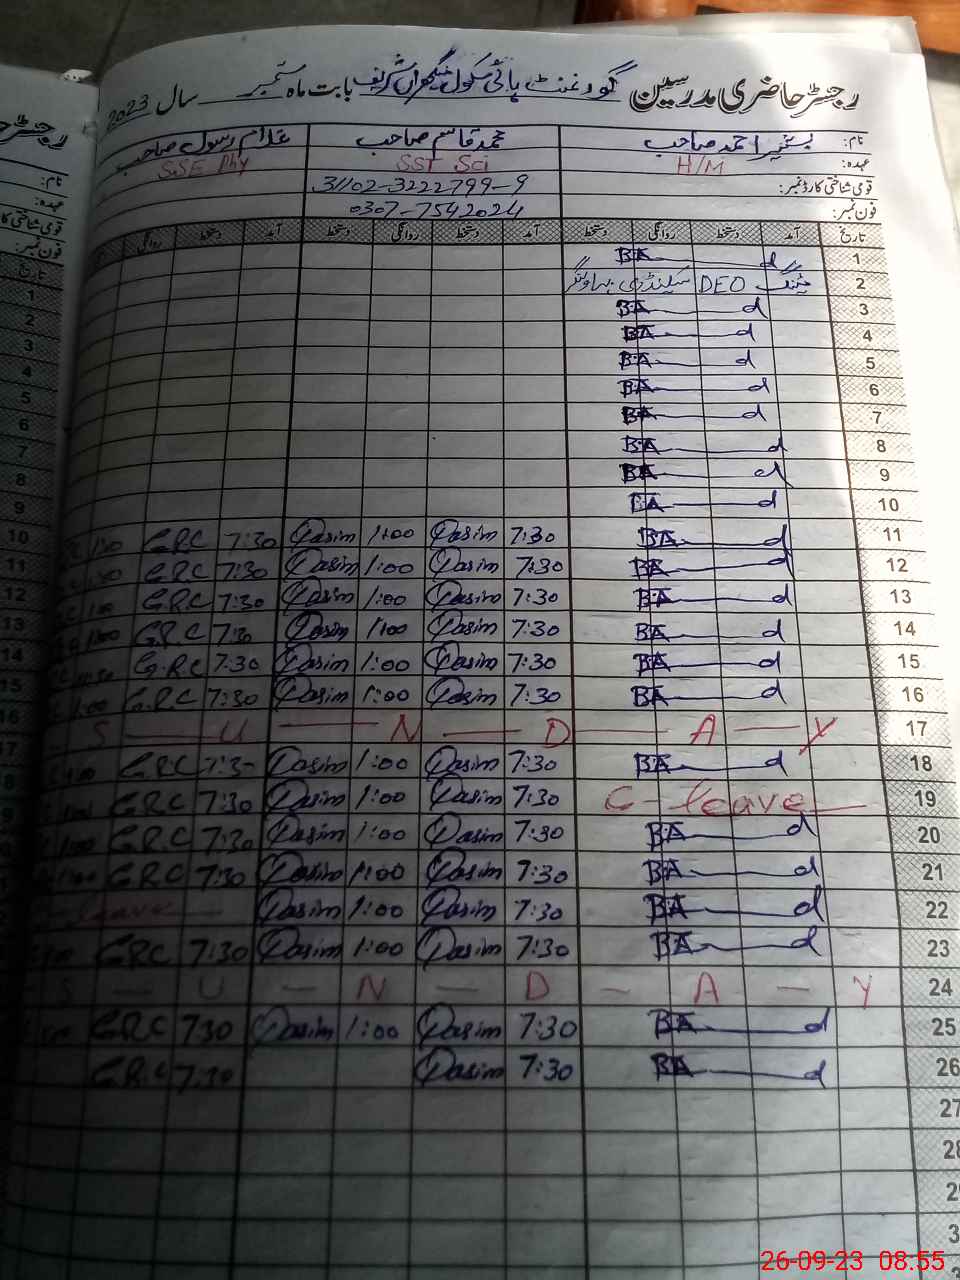 رجسٹر حاضری مدرسین گورنمنٹ ہائی سکول شریف بابت ماہ ستمبر سال 2023
نام: بشیر احمد صاحب محمد قاسم صاحب غلام رسول صاحب
عہدہ: H/M SST Sci SSE Phy
قومی شناختی کارڈ نمبر: 31102-3222799-9
فون نمبر: 0307-7542024
تاریخ آمد دستخط روانگی دستخط آمد دستخط روانگی دستخط آمد دستخط روانگی
1 BA d
2 میٹنگ DEO سیکنڈری بہاولنگر
3 BA d
4 BA d
5 BA d
6 BA d
7 BA d
8 BA d
9 BA d
10 BA d
G.R.C 7:30 Qasim 1:00 Qasim 7:30 BA d 11
G.R.C 7:30 Qasim 1:00 Qasim 7:30 BA d 12
G.R.C 7:30 Qasim 1:00 Qasim 7:30 BA d 13
G.R.C 7:30 Qasim 1:00 Qasim 7:30 BA d 14
G.R.C 7:30 Qasim 1:00 Qasim 7:30 BA d 15
1:00 G.R.C 7:30 Qasim 1:00 Qasim 7:30 BA d 16
S — U — N — D — A — Y 17
G.R.C 7:30 Qasim 1:00 Qasim 7:30 BA d 18
G.R.C 7:30 Qasim 1:00 Qasim 7:30 C - leave 19
G.R.C 7:30 Qasim 1:00 Qasim 7:30 BA d 20
G.R.C 7:30 Qasim 1:00 Qasim 7:30 BA d 21
leave — Qasim 1:00 Qasim 7:30 BA d 22
G.R.C 7:30 Qasim 1:00 Qasim 7:30 BA d 23
S — U — N — D — A — Y 24
G.R.C 7:30 Qasim 1:00 Qasim 7:30 BA d 25
G.R.C 7:30 Qasim 7:30 BA d 26
27
28
26-09-23 08:55